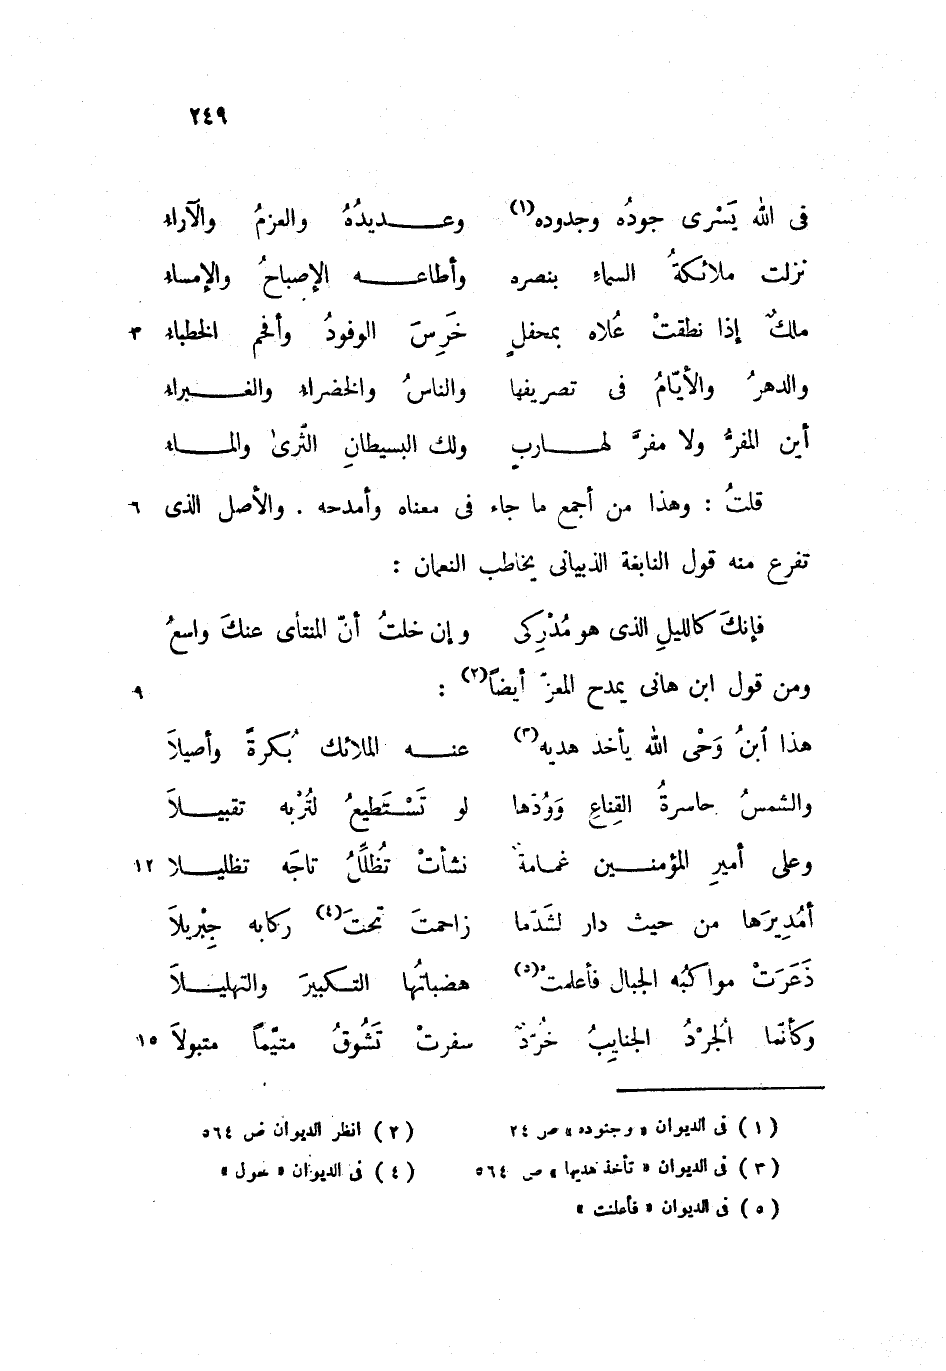 ٢٤٩
فى الله يَسْرى جودُه وجدوده(١) وعـديدُهُ والعزمُ والآراء
نزلت ملائكةُ السماءِ بنصره وأطاعـه الإصباحُ والإمساء
ملكٌ إذا نطقتْ عُلاه بمحفلٍ خَرِسَ الوفودُ وأفحم الخطباء ٣
والدهرُ والأيّامُ فى تصريفها والناسُ والخضراء والغـبراء
أين المفرُّ ولا مفرَّ لهـاربٍ ولك البسيطانِ الثّرىٰ والمـاء
قلتُ : وهذا من أجمع ما جاء فى معناه وأمدحه . والأصل الذى ٦
تفرع منه قول النابغة الذبيانى يخاطب النعمان :
فإنكَ كالليلِ الذى هو مُدْرِكى وإن خلتُ أنّ المنتأى عنكَ واسعُ
ومن قول ابن هانى يمدح المعزّ أيضاً(٢) : ٩
هذا ٱبنُ وَحْى الله يأخذ هديه(٣) عنـه الملائك بُكرةً وأصيلاَ
والشمسُ حاسرةُ القِناعِ وَوُدّها لو تَسْـتَطيعُ لتُرْبه تقبيـلاَ
وعلى أميرِ المؤمنـين غمامةٌ نشأتْ تُظلِّلُ تاجَه تظليـلا ١٢
أمُدِيرَها من حيث دار لشَدّما زاحمتَ تحتَ(٤) ركابه جِبْريلاَ
ذَعَرَتْ مواكبُه الجبال فأعلمتْ(٥) هضباتُها التـكبيرَ والتهليـلاَ
وكأنّما الجُردُ الجنايبُ خُرّدٌ سفرتْ تَشُوقُ متيّماً متبولاَ ١٥
(١) فى الديوان « وجنوده » ص ٢٤
(٢) انظر الديوان ص ٥٦٤
(٣) فى الديوان « تأخذ هديها » ص ٥٦٤
(٤) فى الديوان « حول »
(٥) فى الديوان « فأعلنت »